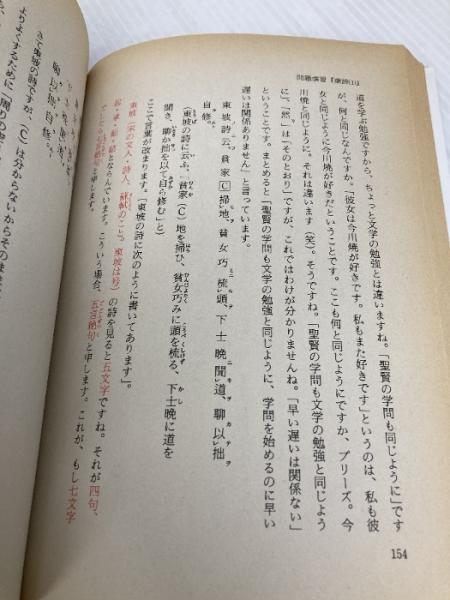 問題演習『東詩11』
道を学ぶ勉強ですから、ちょっと文学の勉強とは違いますね。「聖賢の学問も同じように」です
が、何と同じなんですか。「彼女は今川焼が好きです。私もまた好きです」というのは、私も彼
女と同じように今川焼が好きだということです。ここも何と同じようにですか、プリーズ。今
川焼と同じように。それは違います(笑)。そうですね。「聖賢の学問も文学の勉強と同じよう
に」、「然」は「そのとおり」ですが、これではわけが分かりませんね。「早い遅いは関係ない」
ということです。まとめると「聖賢の学問も文学の勉強と同じように、学問を始めるのに早い
遅いは関係ありません」と言っています。
東坡詩云、貧家C掃地、貧女巧梳頭、下士晩聞道、聊以拙
自修。
(東坡の詩に云ふ、「貧家(C)地を掃ひ、貧女巧みに頭を梳る、下士晩に道を
聞き、聊か拙を以て自ら修む」と)
ここで言葉が改まります。「東坡の詩に次のように書いてあります」。
東坡(宋の文人・詩人、蘇軾のこと。東坡は号)の詩を見ると五文字ですね。それが四句、
起・承・転・結とならんでいます。こういう場合、五言絶句と申します。これが、もし七文字
でしたら七言絶句と申します。
さて東坡の詩ですが、(C)は分からないからそのまま
よりよくするために「周りの
154